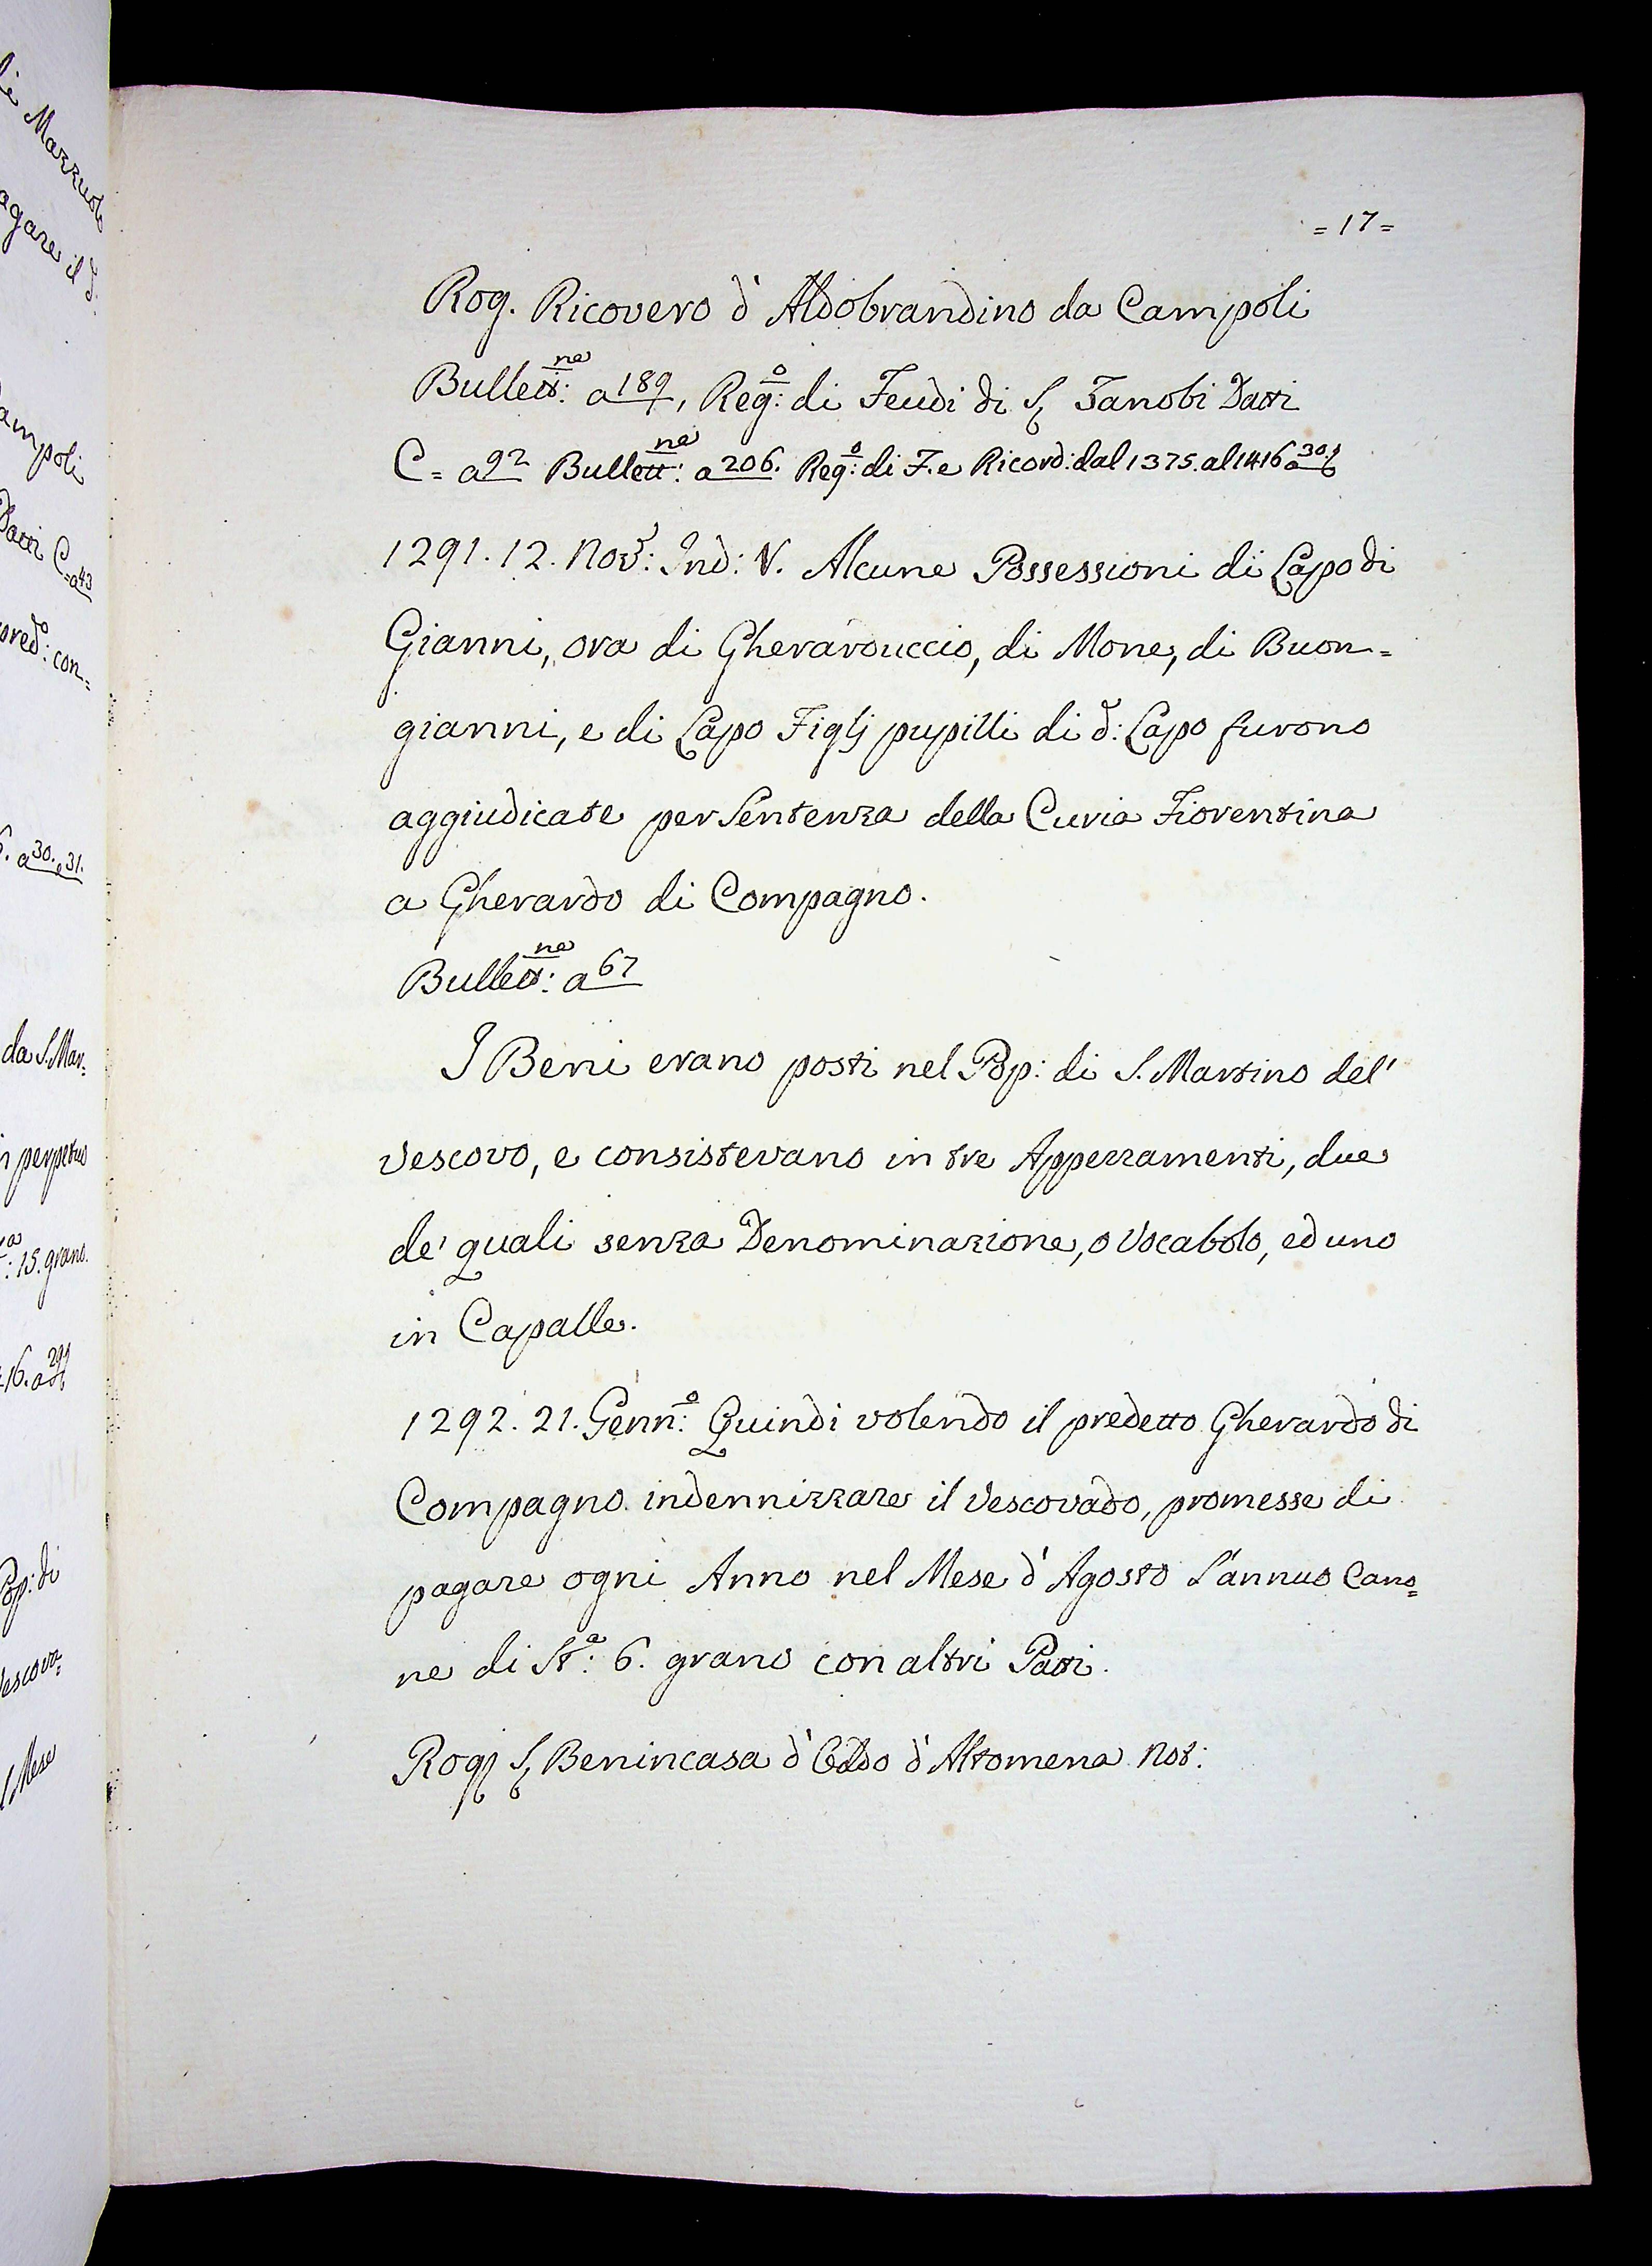 = 17 =
Rog. Ricovero d'Aldobrandino da Campoli
Bullett:ne a 189, Reg:o di Feudi di S. Zanobi Datti
C= a 92 Bullett:ne a 206. Reg:o di F. e Ricord: dal 1375. al 1416 a 30.
1291. 12. Nov: Ind: V. Alcune Possessioni di Lapo di
Gianni, ora di Gherarduccio, di Mone, di Buon=
gianni, e di Lapo Figlj pupilli di d: Lapo furono
aggiudicate per Sentenza della Curia Fiorentina
a Gherardo di Compagno.
Bullett:ne a 67
I Beni erano posti nel Pop: di S. Martino del'
Vescovo, e consistevano in tre Appezzamenti, due
de' quali senza Denominazione, o Vocabolo, ed uno
in Capalle.
1292. 21. Genn:o Quindi volendo il predetto Gherardo di
Compagno indennizzare il Vescovado, promesse di
pagare ogni Anno nel Mese d'Agosto l'annuo Cano=
ne di St:a 6. grano con altri Patti.
Rog. S. Benincasa d' d'Altomena Not:
da S. Mar=
n perpetuo
: 15. grano.
Pop: di
Mese